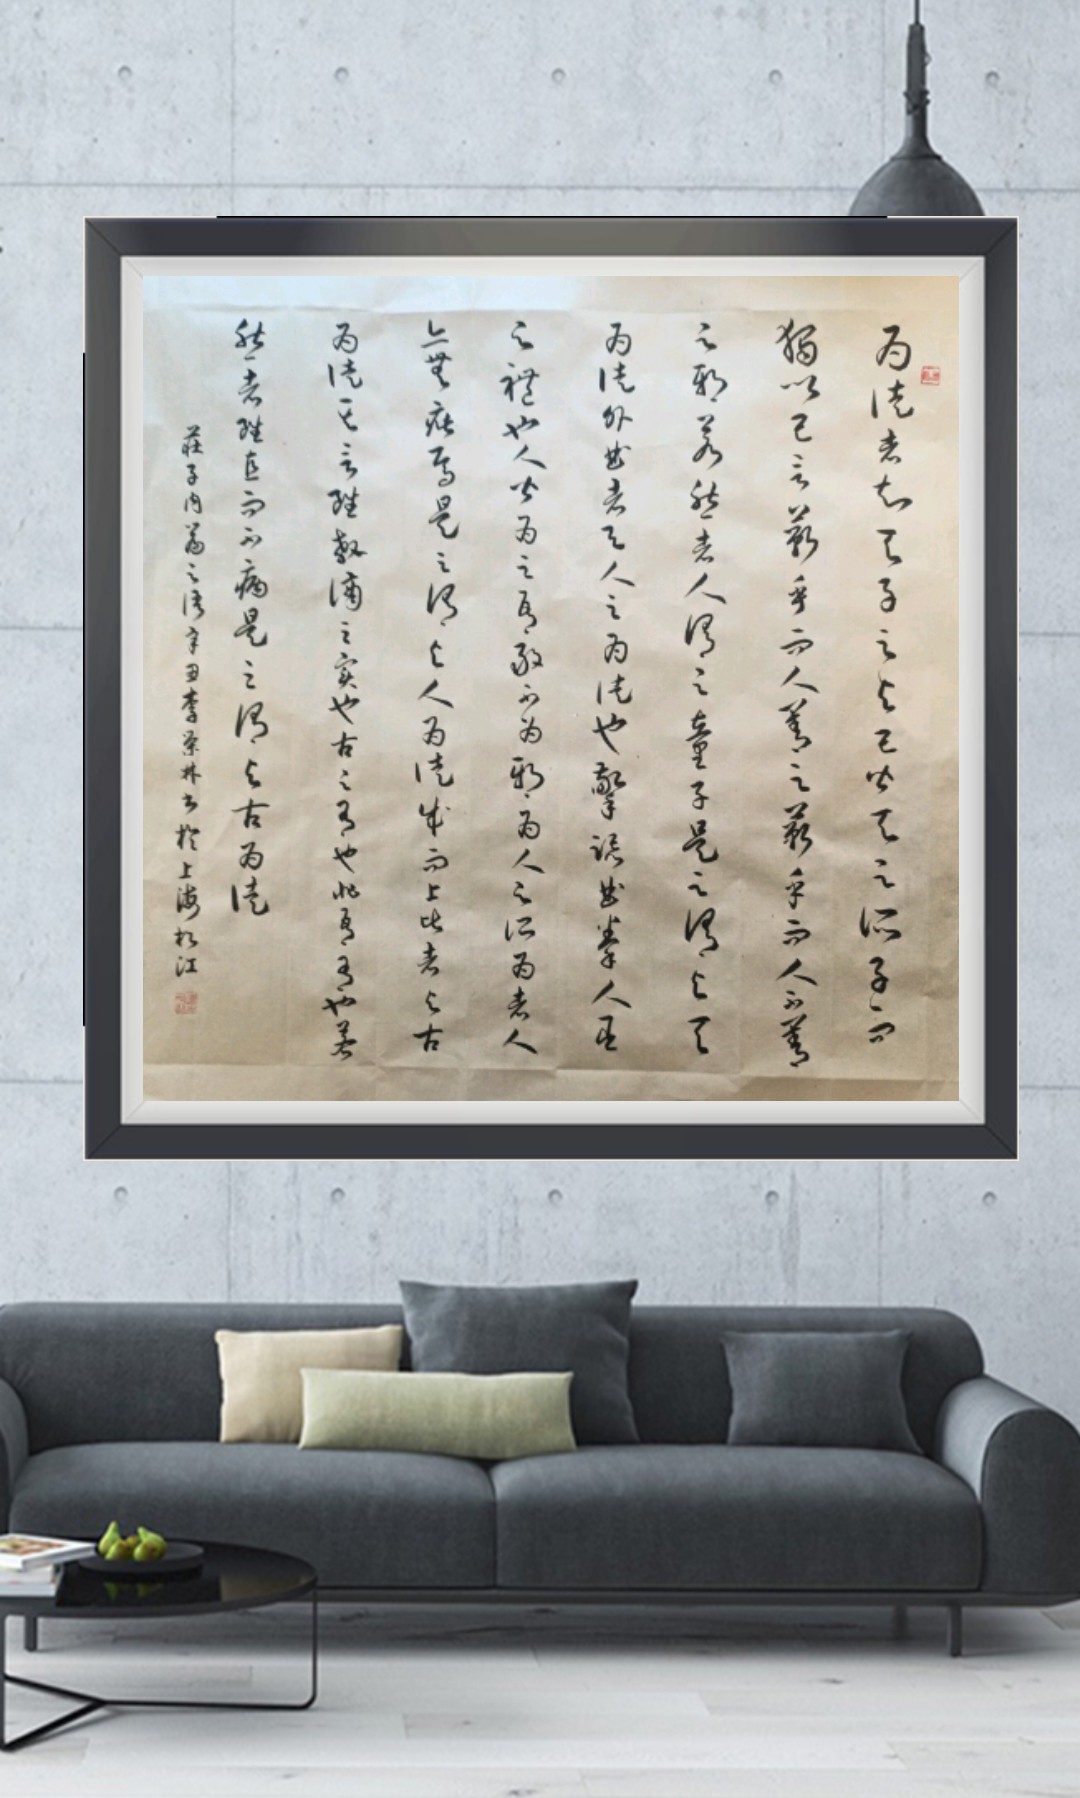 為徒者知天子之与己皆天之所子而
獨以己言蘄乎而人善之蘄乎而人不善
之邪若然者人謂之童子是之謂与天
為徒外曲者天人之為徒也擎跽曲拳人臣
之禮也人皆為之吾敢不為邪為人之所為者人
亦無疵焉是之謂与人為徒成而上比者与古
為徒其言雖教謫之实也古之有也非吾有也若
然者雖直而不病是之謂与古為徒
莊子内篇之語辛丑李景林书於上海松江